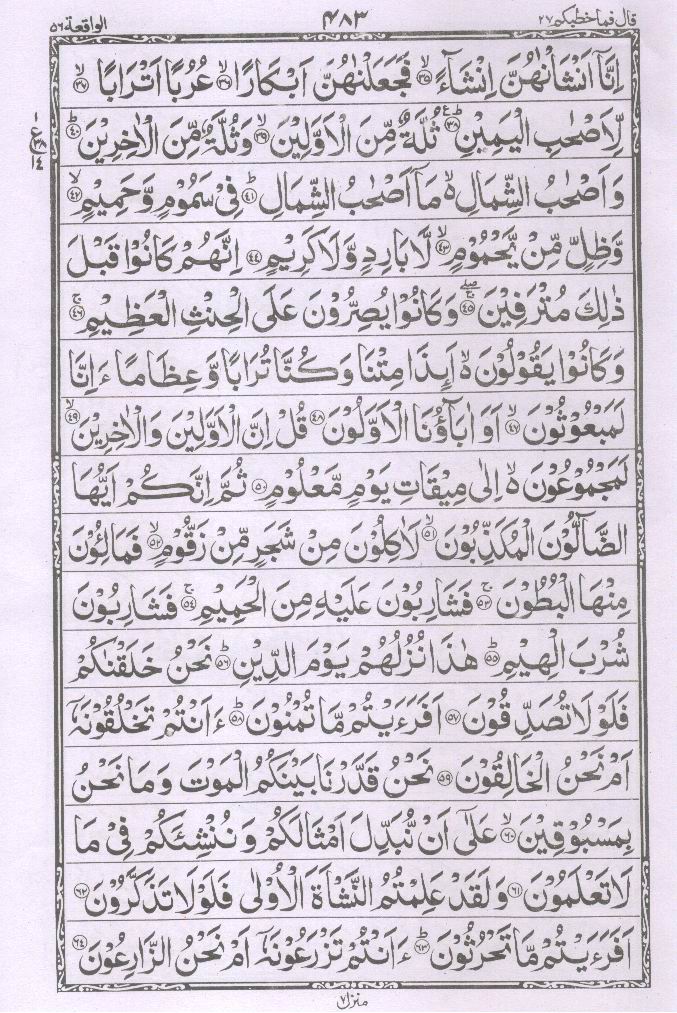 قال فما خطبكم ٢٧ ٤٨٣ الواقعة ٥٦
اِنَّاۤ اَنْشَاْنٰهُنَّ اِنْشَآءً ۙ‏﴿۳۵﴾ فَجَعَلْنٰهُنَّ اَبْكَارًا ۙ‏﴿۳۶﴾ عُرُبًا اَتْرَابًا ۙ‏﴿۳۷﴾
لِّاَصْحٰبِ الْيَمِيْنِ ؕ‏﴿۳۸﴾ ثُلَّةٌ مِّنَ الْاَوَّلِيْنَ ۙ‏﴿۳۹﴾ وَثُلَّةٌ مِّنَ الْاٰخِرِيْنَ ؕ‏﴿۴۰﴾
وَاَصْحٰبُ الشِّمَالِ ۙ۬ مَاۤ اَصْحٰبُ الشِّمَالِ ؕ‏﴿۴۱﴾ فِىْ سَمُوْمٍ وَّحَمِيْمٍ ۙ‏﴿۴۲﴾
وَّظِلٍّ مِّنْ يَّحْمُوْمٍ ۙ‏﴿۴۳﴾ لَّا بَارِدٍ وَّلَا كَرِيْمٍ ‏﴿۴۴﴾ اِنَّهُمْ كَانُوْا قَبْلَ
ذٰلِكَ مُتْرَفِيْنَ ۚۖ‏﴿۴۵﴾ وَكَانُوْا يُصِرُّوْنَ عَلَى الْحِنْثِ الْعَظِيْمِ ۚ‏﴿۴۶﴾
وَكَانُوْا يَقُوْلُوْنَ ۙ۬ اَٮِٕذَا مِتْنَا وَكُنَّا تُرَابًا وَّعِظَامًا ءَاِنَّا
لَمَبْعُوْثُوْنَ ۙ‏﴿۴۷﴾ اَوَاٰبَآؤُنَا الْاَوَّلُوْنَ ‏﴿۴۸﴾ قُلْ اِنَّ الْاَوَّلِيْنَ وَالْاٰخِرِيْنَ ۙ‏﴿۴۹﴾
لَمَجْمُوْعُوْنَ ۙ۬ اِلٰى مِيْقَاتِ يَوْمٍ مَّعْلُوْمٍ ‏﴿۵۰﴾ ثُمَّ اِنَّكُمْ اَيُّهَا
الضَّآلُّوْنَ الْمُكَذِّبُوْنَ ۙ‏﴿۵۱﴾ لَاٰكِلُوْنَ مِنْ شَجَرٍ مِّنْ زَقُّوْمٍ ۙ‏﴿۵۲﴾ فَمَالِـُٔوْنَ
مِنْهَا الْبُطُوْنَ ۚ‏﴿۵۳﴾ فَشَارِبُوْنَ عَلَيْهِ مِنَ الْحَمِيْمِ ۚ‏﴿۵۴﴾ فَشَارِبُوْنَ
شُرْبَ الْهِيْمِ ؕ‏﴿۵۵﴾ هٰذَا نُزُلُهُمْ يَوْمَ الدِّيْنِ ؕ‏﴿۵۶﴾ نَحْنُ خَلَقْنٰكُمْ
فَلَوْلَا تُصَدِّقُوْنَ ‏﴿۵۷﴾ اَفَرَءَيْتُمْ مَّا تُمْنُوْنَ ؕ‏﴿۵۸﴾ ءَاَنْتُمْ تَخْلُقُوْنَهٗۤ
اَمْ نَحْنُ الْخَالِقُوْنَ ‏﴿۵۹﴾ نَحْنُ قَدَّرْنَا بَيْنَكُمُ الْمَوْتَ وَمَا نَحْنُ
بِمَسْبُوْقِيْنَ ۙ‏﴿۶۰﴾ عَلٰٓى اَنْ نُّبَدِّلَ اَمْثَالَكُمْ وَنُنْشِئَكُمْ فِىْ مَا
لَا تَعْلَمُوْنَ ‏﴿۶۱﴾ وَلَقَدْ عَلِمْتُمُ النَّشْاَةَ الْاُوْلٰى فَلَوْلَا تَذَكَّرُوْنَ ‏﴿۶۲﴾
اَفَرَءَيْتُمْ مَّا تَحْرُثُوْنَ ؕ‏﴿۶۳﴾ ءَاَنْتُمْ تَزْرَعُوْنَهٗۤ اَمْ نَحْنُ الزَّارِعُوْنَ ‏﴿۶۴﴾
منزل ٧